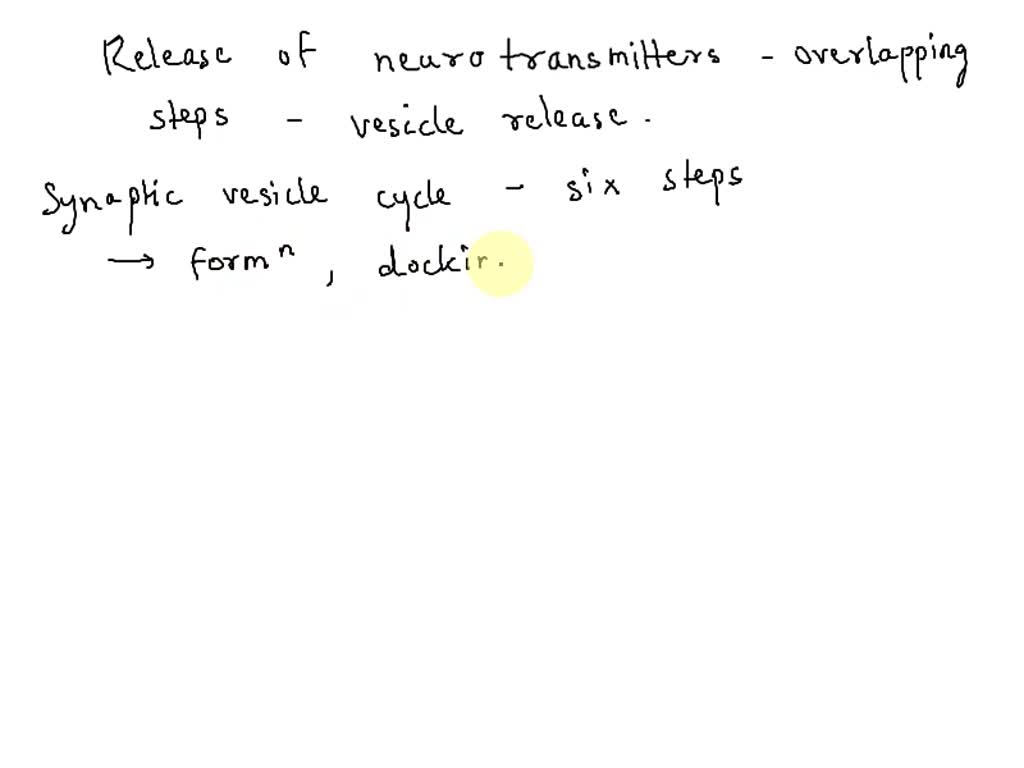 Release of neurotransmitters - overlapping
steps - vesicle release.
Synaptic vesicle cycle - six steps
→ formⁿ, dockin